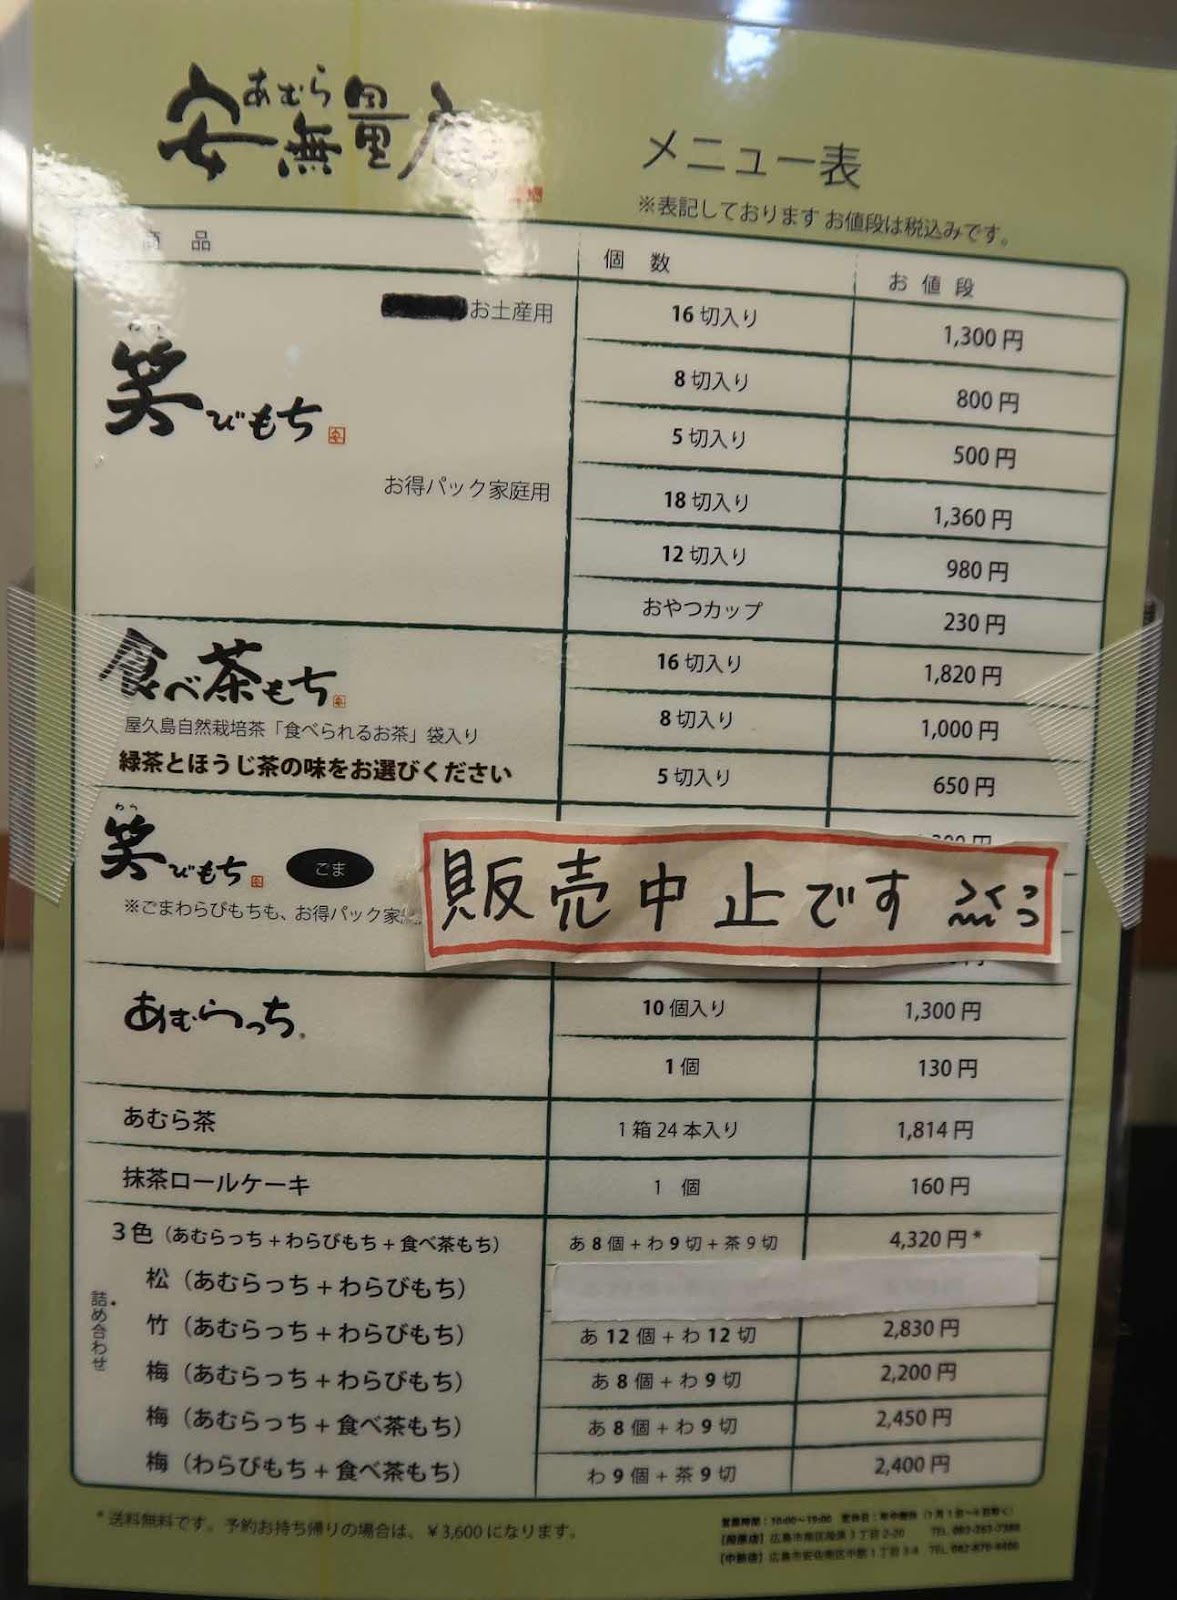 あむら
安無量庵
メニュー表
※表記しております お値段は税込みです。
商品 個数 お値段
わら
笑びもち
お土産用 16切入り 1,300円
8切入り 800円
5切入り 500円
お得パック家庭用 18切入り 1,360円
12切入り 980円
おやつカップ 230円
食べ茶もち 16切入り 1,820円
屋久島自然栽培茶「食べられるお茶」袋入り 8切入り 1,000円
緑茶とほうじ茶の味をお選びください 5切入り 650円
わら
笑びもち ごま
※ごまわらびもちも、お得パック家
販売中止です
あむらっち 10個入り 1,300円
1個 130円
あむら茶 1箱24本入り 1,814円
抹茶ロールケーキ 1個 160円
詰め合わせ
3色（あむらっち+わらびもち+食べ茶もち） あ8個+わ9切+茶9切 4,320円*
松（あむらっち+わらびもち）
竹（あむらっち+わらびもち） あ12個+わ12切 2,830円
梅（あむらっち+わらびもち） あ8個+わ9切 2,200円
梅（あむらっち+食べ茶もち） あ8個+わ9切 2,450円
梅（わらびもち+食べ茶もち） わ9個+茶9切 2,400円
*送料無料です。予約お持ち帰りの場合は、¥3,600になります。
営業時間：10:00〜19:00 定休日：年中無休
広島市南区段原3丁目2-20 TEL
広島市安佐南区中筋1丁目3-4 TEL